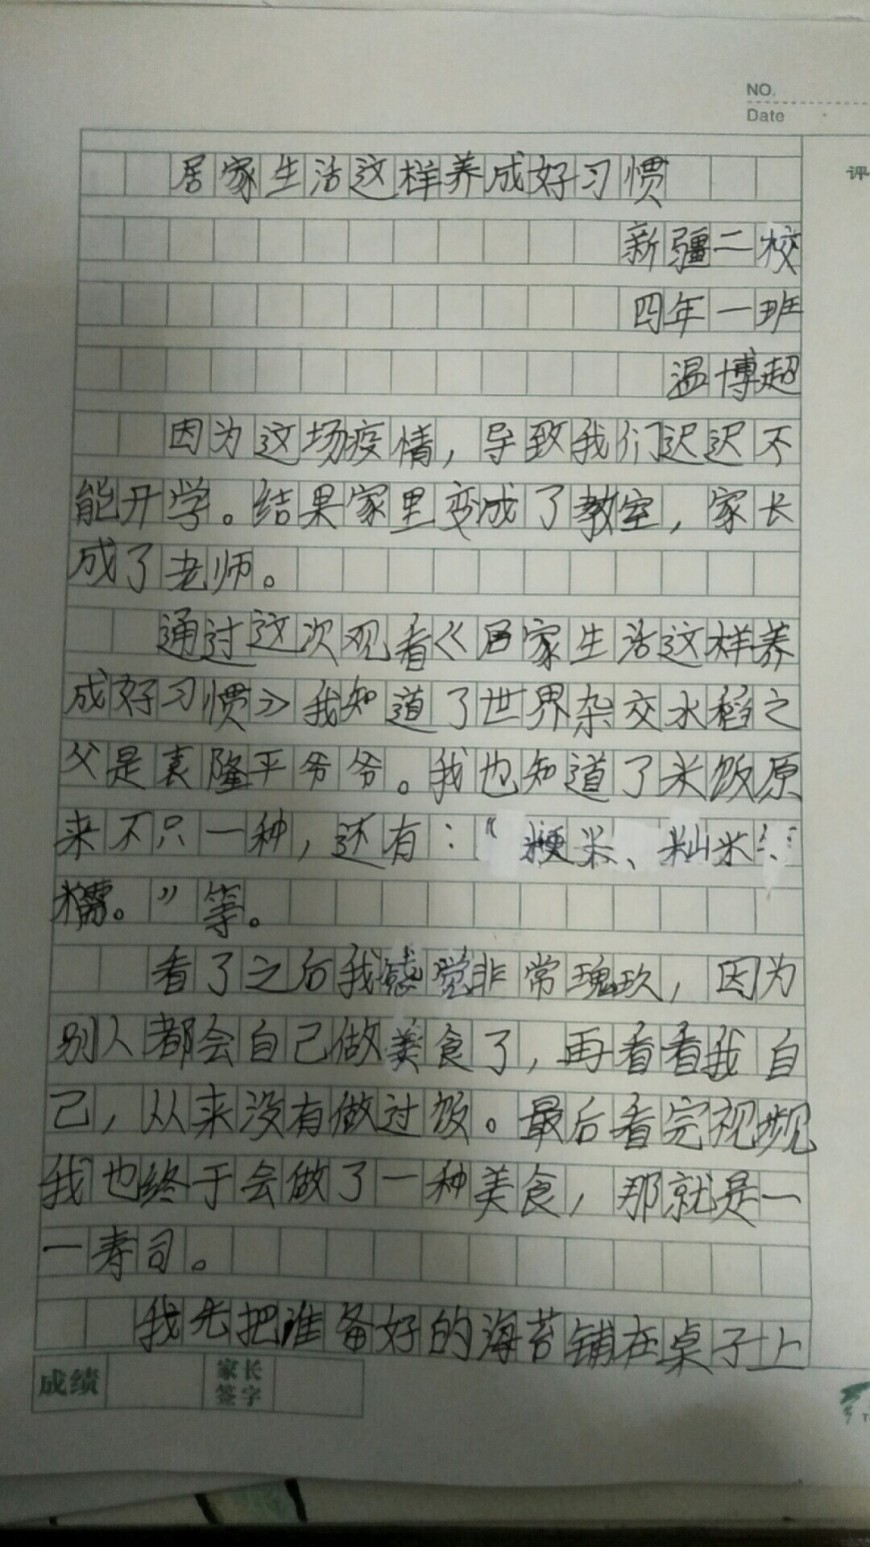 NO.
Date
评
居家生活这样养成好习惯
新疆二校
四年一班
温博超
因为这场疫情，导致我们迟迟不
能开学。结果家里变成了教室，家长
成了老师。
通过这次观看《居家生活这样养
成好习惯》我知道了世界杂交水稻之
父是袁隆平爷爷。我也知道了米饭原
来不只一种，还有：“粳米、籼米、
糯。”等。
看了之后我感觉非常瑰玖，因为
别人都会自己做美食了，再看看我自
己，从来没有做过饭。最后看完视频
我也终于会做了一种美食，那就是一
一寿司。
我先把准备好的海苔铺在桌子上
成绩
家长
签字